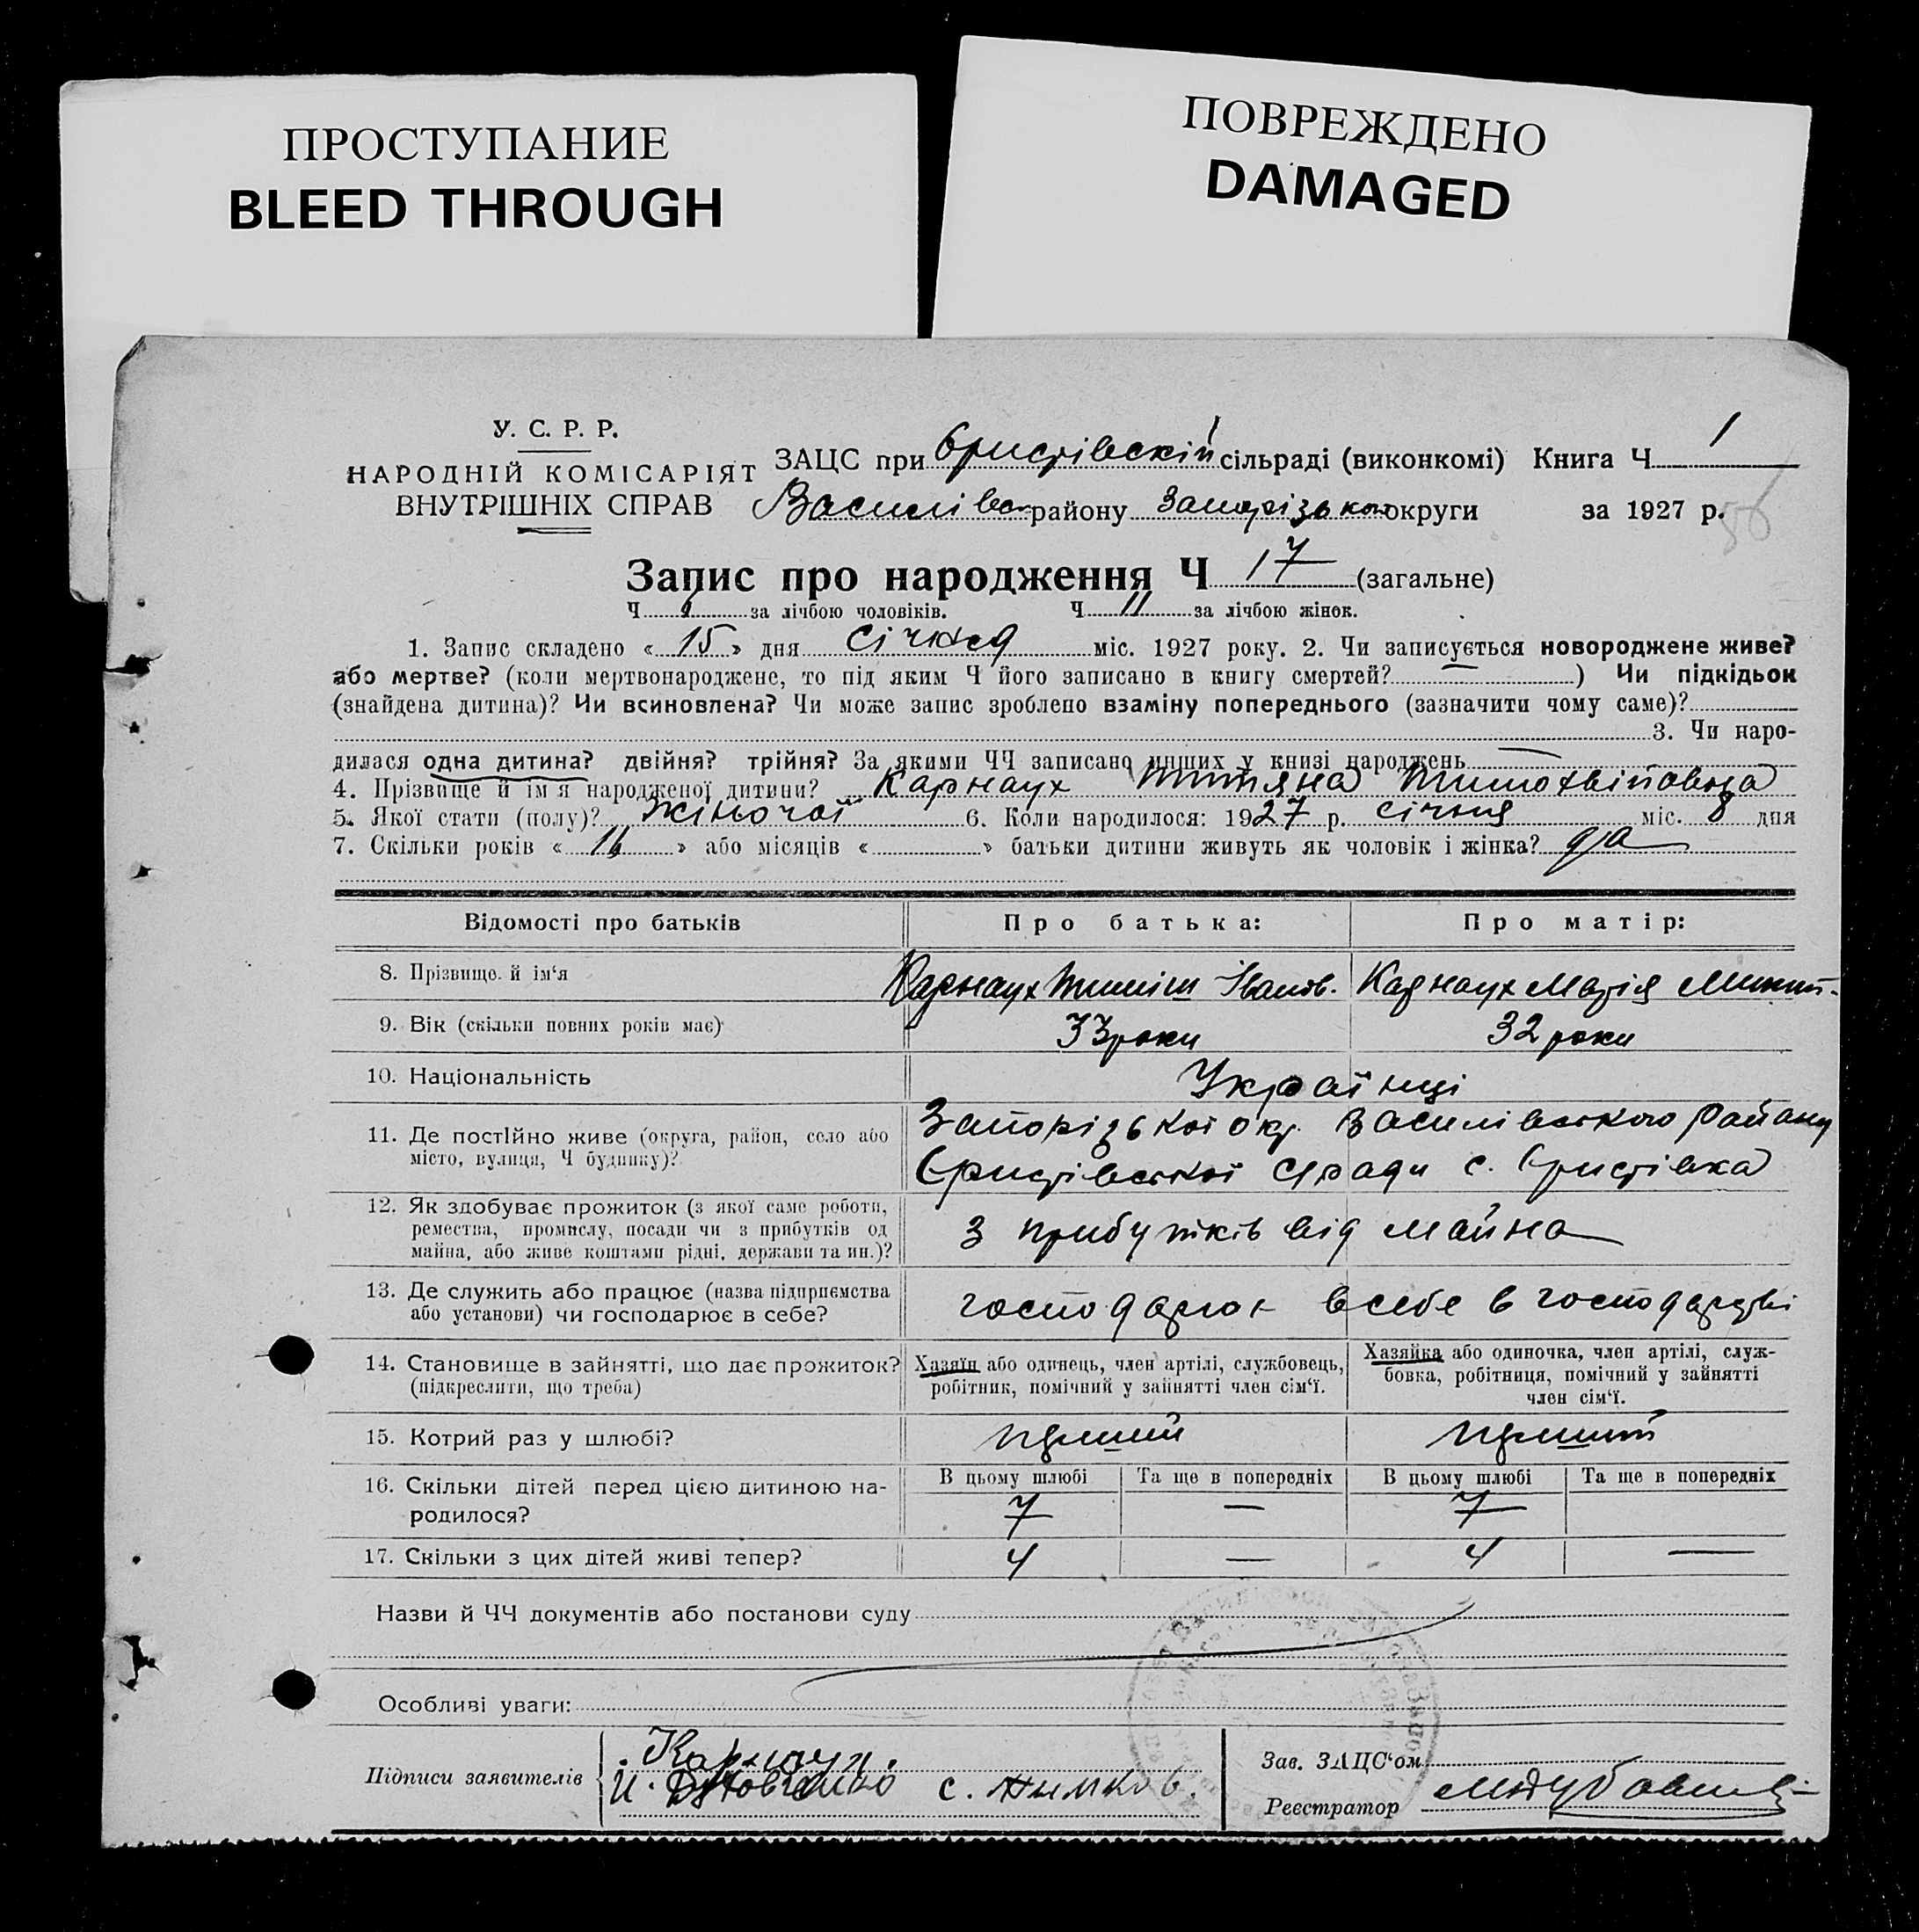 ПРОСТУПАНИЕ
BLEED THROUGH
ПОВРЕЖДЕНО
DAMAGED
У. С. Р. Р.
НАРОДНІЙ КОМІСАРІЯТ
ВНУТРІШНІХ СПРАВ
ЗАЦС при сільраді (виконкомі) Книга Ч 1
Василівск району Запорізького округи за 1927 р.
56
Запис про народження Ч 17 (загальне)
Ч 6 за лічбою чоловіків. Ч 11 за лічбою жінок.
1. Запис складено « 15 » дня січня міс. 1927 року. 2. Чи записується новороджене живе?
або мертве? (коли мертвонароджене, то під яким Ч його записано в книгу смертей? — ) Чи підкідьок
(знайдена дитина)? Чи всиновлена? Чи може запис зроблено взаміну попереднього (зазначити чому саме)?
3. Чи наро-
дилася одна дитина? двійня? трійня? За якими ЧЧ записано инших у книзі народжень —
4. Прізвище й ім'я народженої дитини? Карнаух Титяна Тимохвійовна
5. Якої стати (полу)? жіночої 6. Коли народилося: 1927 р. січня міс. 8 дня
7. Скільки років « 16 » або місяців « » батьки дитини живуть як чоловік і жінка? да
Відомості про батьків Про батька: Про матір:
8. Прізвище й ім‘я Карнаух Тиміш Іванов. Карнаух Марія Микит-
9. Вік (скільки повних років має) 33 роки 32 роки
10. Національність Українці
11. Де постійно живе (округа, район, село або
місто, вулиця, Ч будинку)?
Запорізької окр. Василівського району
сради с.
12. Як здобуває прожиток (з якої саме роботи,
ремества, промислу, посади чи з прибутків од
майна, або живе коштами рідні, держави та ин.)?
З прибутків від майна
13. Де служить або працює (назва підприємства
або установи) чи господарює в себе?
господарює в себе в господарстві
14. Становище в зайнятті, що дає прожиток?
(підкреслити, що треба)
Хазяїн або одинець, член артілі, службовець,
робітник, помічний у зайнятті член сім‘ї.
Хазяйка або одиночка, член артілі, служ-
бовка, робітниця, помічний у зайнятті
член сім‘ї.
15. Котрий раз у шлюбі? перший перший
16. Скільки дітей перед цією дитиною на-
родилося?
В цьому шлюбі Та ще в попередніх В цьому шлюбі Та ще в попередніх
7 — 7
17. Скільки з цих дітей живі тепер? 4 — 4 —
Назви й ЧЧ документів або постанови суду
Особливі уваги:
Підписи заявителів Карнаух.
Зав. ЗАЦС‘ом
Реєстратор